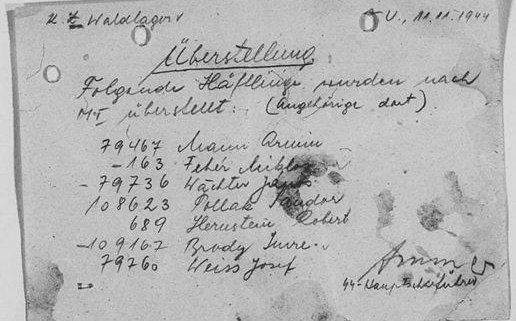 K.Z. Waldlager V
U., 11.11.1944
Überstellung
Folgende Häftlinge wurden nach
M-I überstellt: (Angehörige dort).
79467 Mann Armin
-163 Fehér Miklos
-79736 Wächter János
108623 Pollak Sandor
689 Hernstein Robert
-109167 Brody Imre
79760 Weiss Josef
44-Hauptscharführer